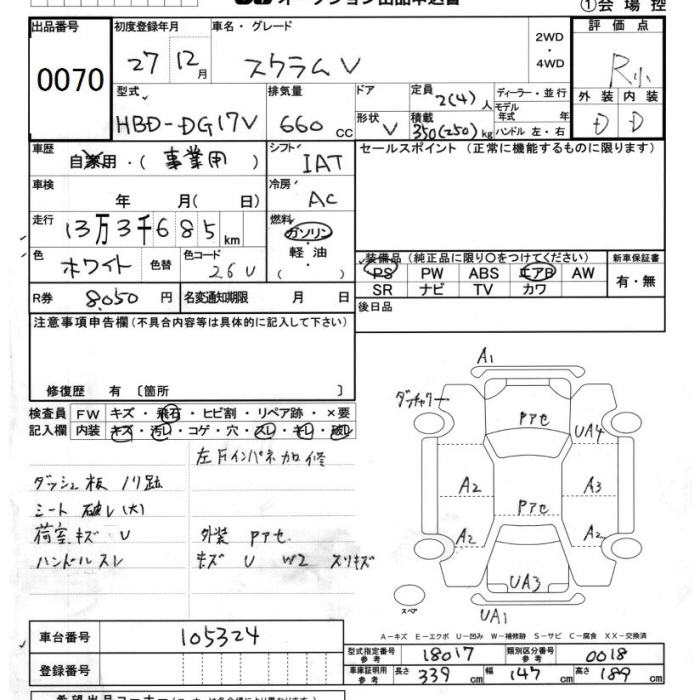 オークション出品申込書
①会場控
出品番号
0070
初度登録年月
27 12月
車名・グレード
スクラムV
2WD
・
4WD
評価点
R小
外装 内装
D D
型式
HBD-DG17V
排気量
660 cc
ドア
形状 V
定員 2(4) 人
積載 350(250) kg
ディーラー・並行
モデル年式 年
ハンドル 左・右
車歴
自家用・(事業用)
シフト
IAT
車検
年 月( 日)
冷房
AC
走行
13万3千685 km
燃料
ガソリン
軽油
( )
色
ホワイト
色替
色コード
26U
R券 8050 円
名変通知期限 月 日
セールスポイント (正常に機能するものに限ります)
装備品 (純正品に限り○をつけてください)
PS PW ABS エアB AW
SR ナビ TV カワ
新車保証書
有・無
後日品
注意事項申告欄(不具合内容等は具体的に記入して下さい)
修復歴 有 〔箇所 〕
検査員記入欄
FW キズ・飛石・ヒビ割・リペア跡・×要
内装 キズ・汚レ・コゲ・穴・スレ・キレ・破レ
左Fインパネ加修
ダッシュ板 ノリ跡
シート 破レ(大)
荷室キズ U
外装 Pアセ
ハンドルスレ
キズ U W2 スリキズ
A1
Pアセ
UA4
A2
A3
Pアセ
A2
A2
UA3
スペア
UA1
A-キズ E-エクボ U-凹み W-補修跡 S-サビ C-腐食 XX-交換済
車台番号 105324
登録番号
型式指定番号 参考 18017
類別区分番号 参考 0018
車庫証明用 参考 長さ 339 cm 幅 147 cm 高さ 189 cm